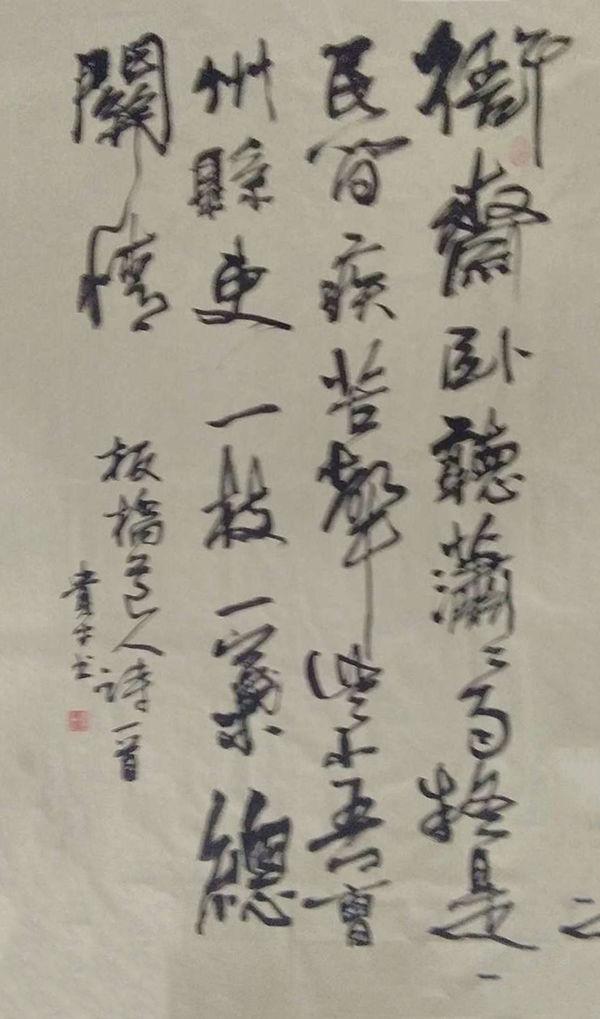 衙齋卧聽瀟〻竹疑是
民間疾苦聲些小吾曹
州縣吏一枝一葉總
關情
板橋道人詩一首